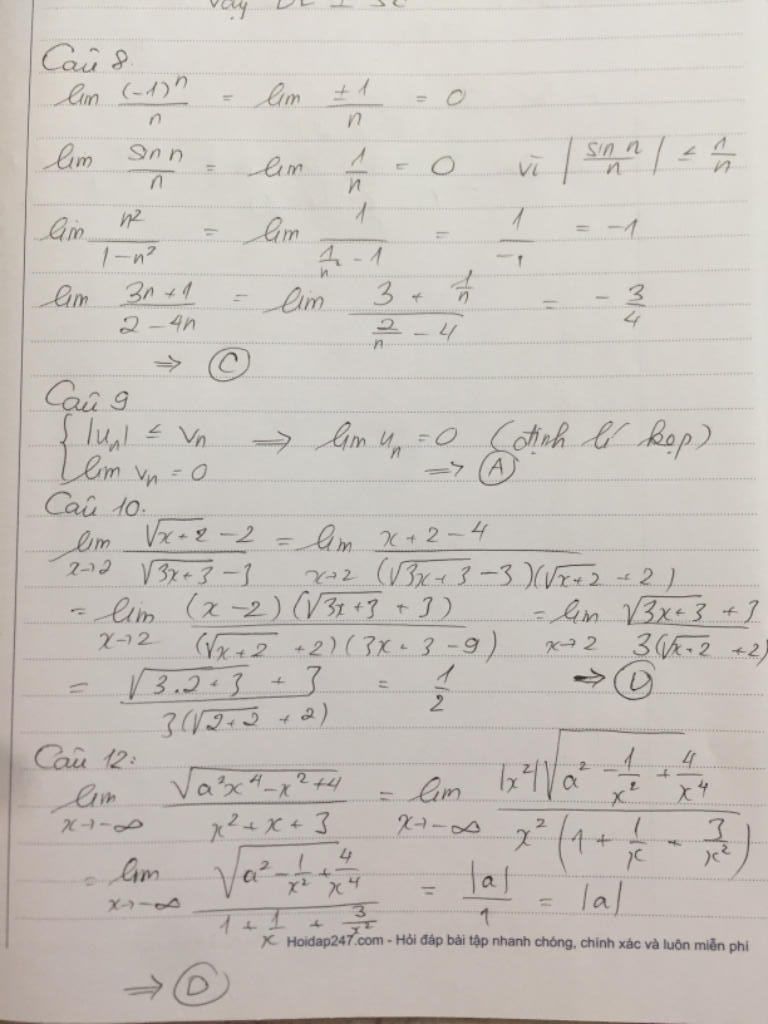 Vậy
Câu 8.
lim (-1)^n / n = lim ±1 / n = 0
lim sin n / n = lim 1/n = 0 vì |sin n / n| ≤ 1/n
lim n² / (1-n²) = lim 1 / (1/n² - 1) = 1/-1 = -1
lim (3n+1) / (2-4n) = lim (3 + 1/n) / (2/n - 4) = -3/4
⇒ Ⓒ
Câu 9
{ |u_n| ≤ v_n ⇒ lim u_n = 0 (định lí kẹp)
lim v_n = 0 ⇒ Ⓐ
Câu 10.
lim x→2 (√(x+2) - 2) / (√(3x+3) - 3) = lim x→2 (x+2-4) / ((√(3x+3) - 3)(√(x+2) + 2))
= lim x→2 (x-2)(√(3x+3) + 3) / ((√(x+2) + 2)(3x+3-9)) = lim x→2 (√(3x+3) + 3) / (3(√(x+2) + 2))
= (√(3.2+3) + 3) / (3(√(2+2) + 2)) = 1/2 ⇒ Ⓓ
Câu 12:
lim x→-∞ √(a²x⁴ - x² + 4) / (x² + x + 3) = lim x→-∞ |x²|√(a² - 1/x² + 4/x⁴) / (x²(1 + 1/x + 3/x²))
= lim x→-∞ √(a² - 1/x² + 4/x⁴) / (1 + 1/x + 3/x²) = |a|/1 = |a|
Hoidap247.com - Hỏi đáp bài tập nhanh chóng, chính xác và luôn miễn phí
⇒ Ⓓ